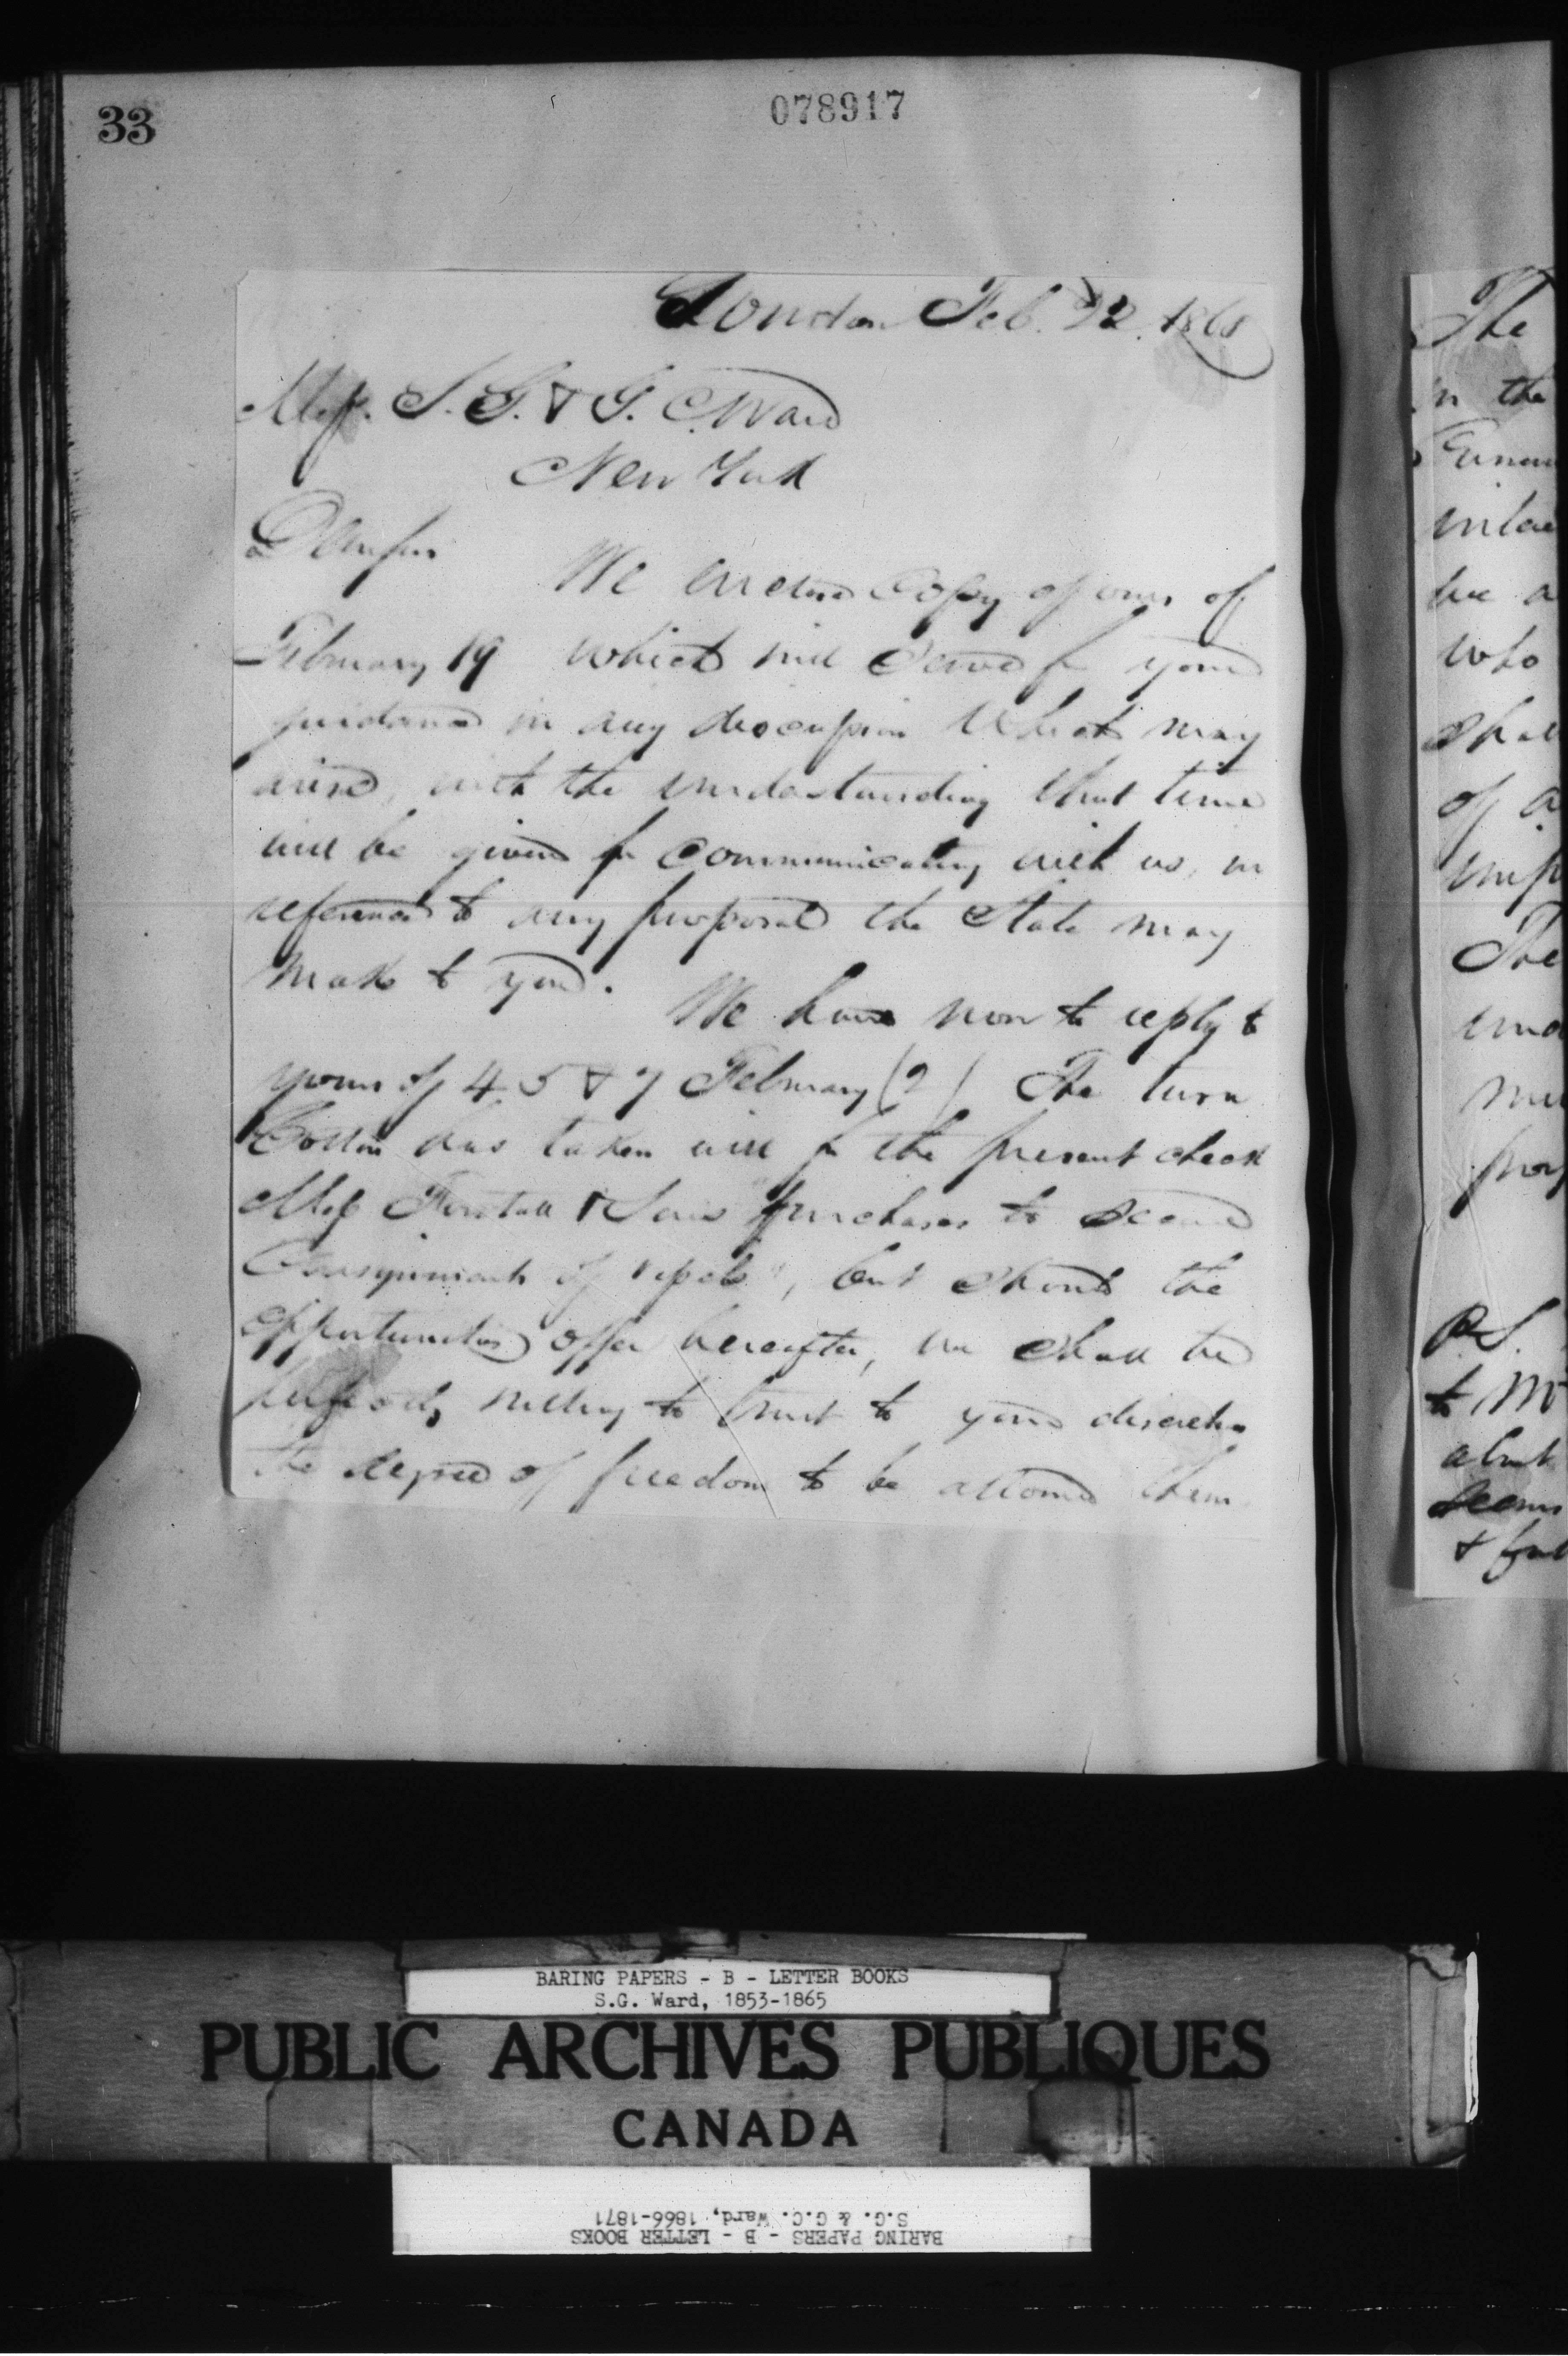 33
078917
London Feb. 22. 1868
Mess. S. G. & G. C. Ward
New York
Dear sirs
We enclose Copy of ours of
February 19 which will serve for your
guidance in any discussion which may
arise, with the understanding that time
will be given for communicating with us, in
reference to any proposal the State may
make to you.
We have now to reply to
yours of 4. 5 & 7 February (2) The turn
Cotton has taken will for the present check
Mess Forstall & Sons "purchases to secure
Consignment of vessels", but should the
opportunities offer hereafter, we shall be
perfectly willing to trust to your discretion
the degree of freedom to be allowed them
The
in the
be a
who
shall
of a
The
P.S.
to Mr
about
seems
BARING PAPERS - B - LETTER BOOKS
S.G. Ward, 1853-1865
PUBLIC ARCHIVES PUBLIQUES
CANADA
BARING PAPERS - B - LETTER BOOKS
S.G. & G.C. Ward, 1866-1871